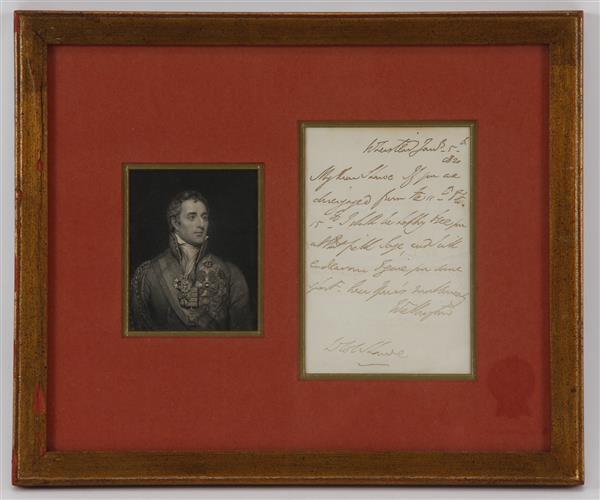 Jany 5th
1820
My dear Shawe If you are
disengaged from the 11th
15th I shall be happy to see you
at Saye, and will
endeavour to give you some
sport. Ever Yours most sincerely
Wellington
Shawe